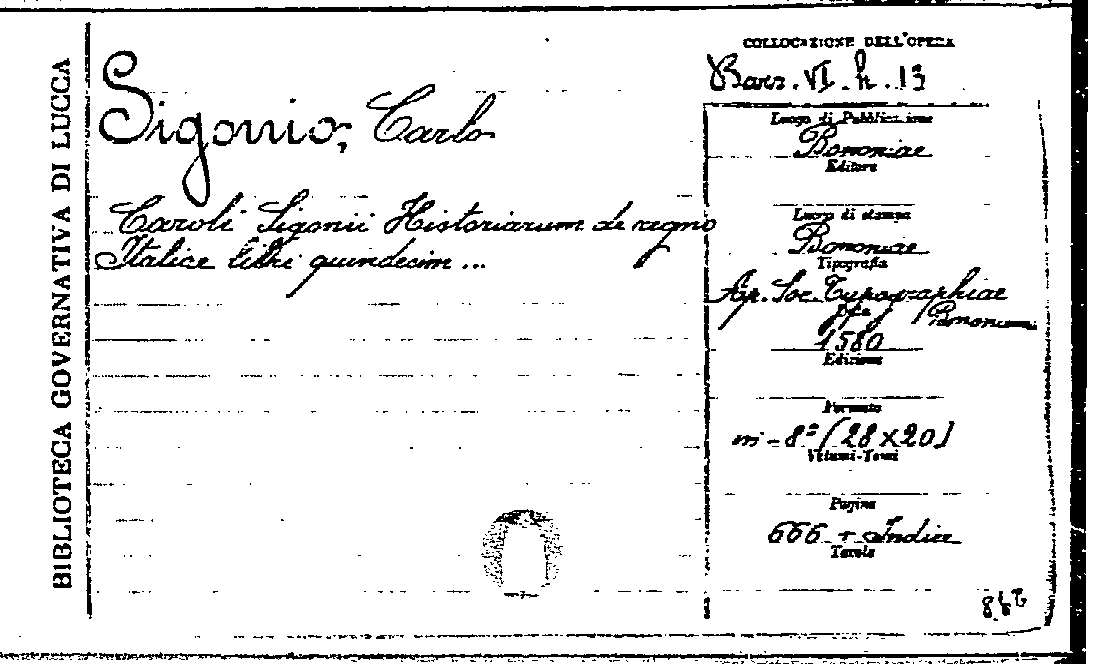 BIBLIOTECA GOVERNATIVA DI LUCCA
COLLOCAZIONE DELL'OPERA
Bars. VI. h. 13
Sigonio, Carlo
Caroli Sigonii Historiarum de regno
Italice libri quindecim ...
Luogo di Pubblicazione
Bononiae
Editore
Luogo di stampa
Bononiae
Tipografia
Ap. Soc. Typographiae
Bononiensis
1580
Edizione
Formato
in-8º (28 x 20)
Volumi-Tomi
Pagine
666 + Indice
Tavole